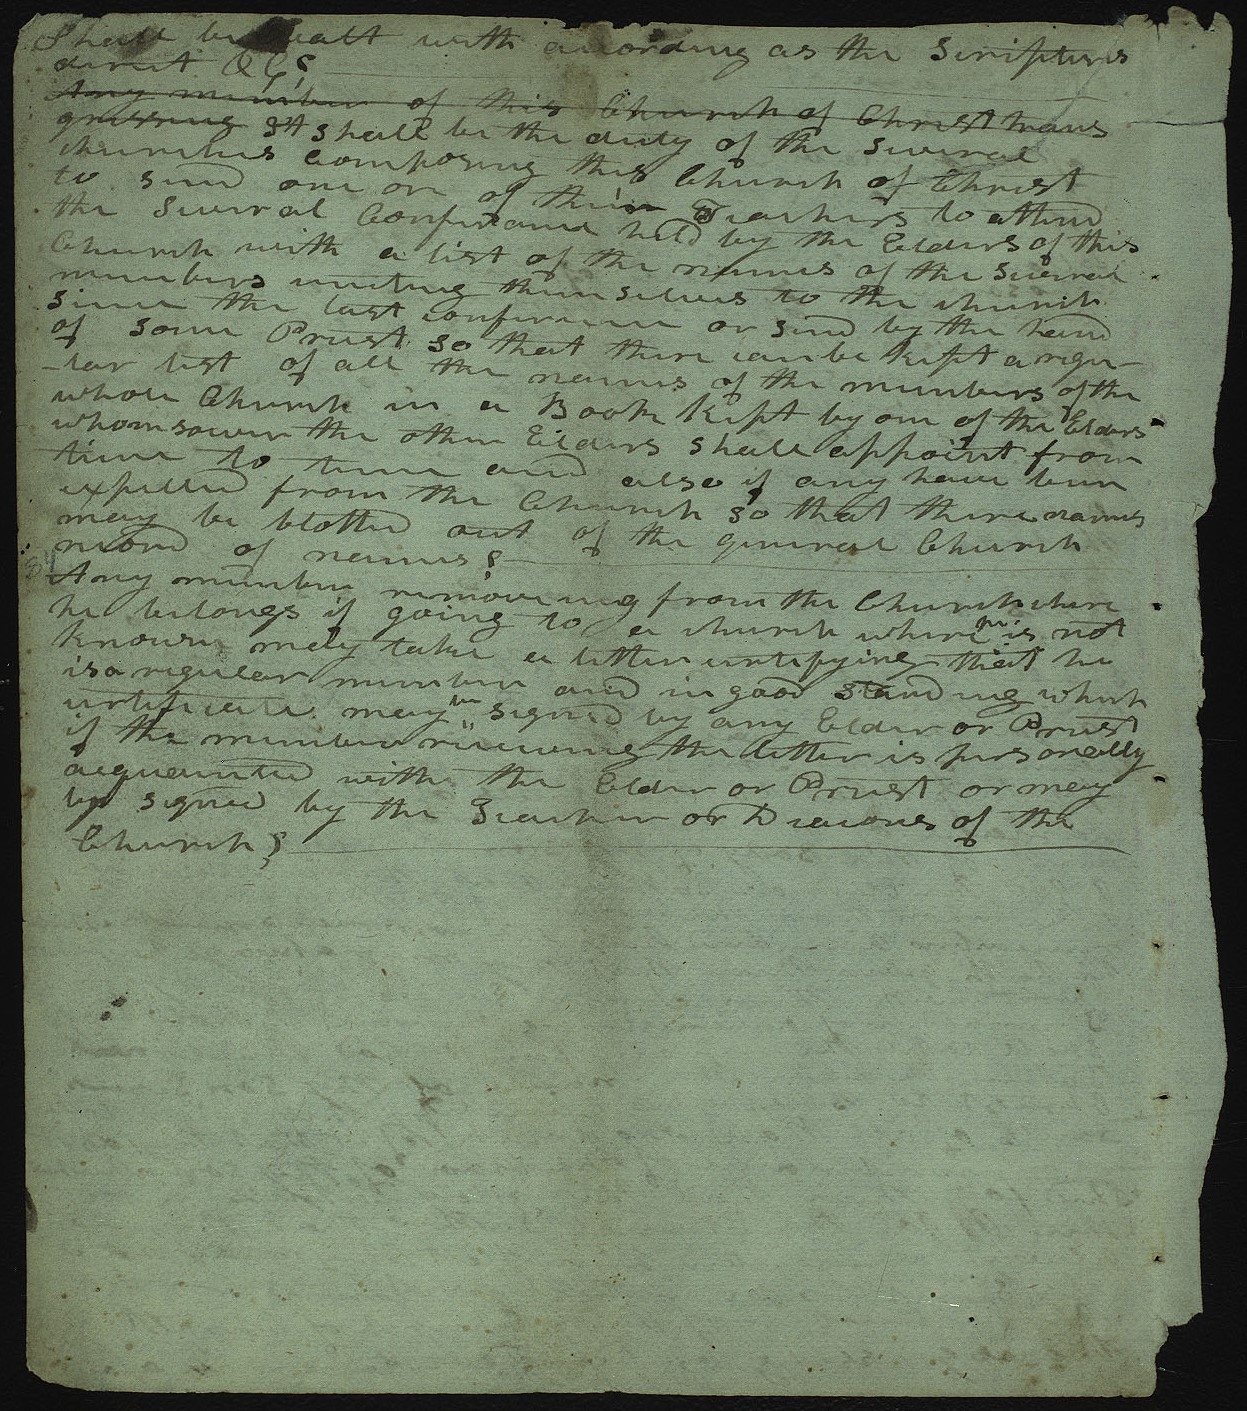 Shall be dealt with according as the Scriptures
direct
Any member of this Church of Christ trans
gressing It Shall be the duty of the several
churches Composing this Church of Christ
to send one or of their Teachers to attend
the several Conferance held by the Elders of this
Church with a list of the names of the several
members uniting themselves to the church
since the last conference or send by the hand
of some Priest so that there can be kept a regu
-lar list of all the names of the members of the
whole Church in a Book kept by one of the Elders
whomsoever the other Elders shall appoint from
time to time and also if any have been
expelled from the Church so that there names
may be blotted out of the general Church
record of names
Any member removeing from the Church where
he belongs if going to a church where he is not
known may take a letter certifying that he
is a regular member and in good standing which
certificate may be signed by any Elder or Priest
if the member receiveing the letter is personally
acquainted with the Elder or Priest or may
be signed by the Teacher or Deacons of the
Church